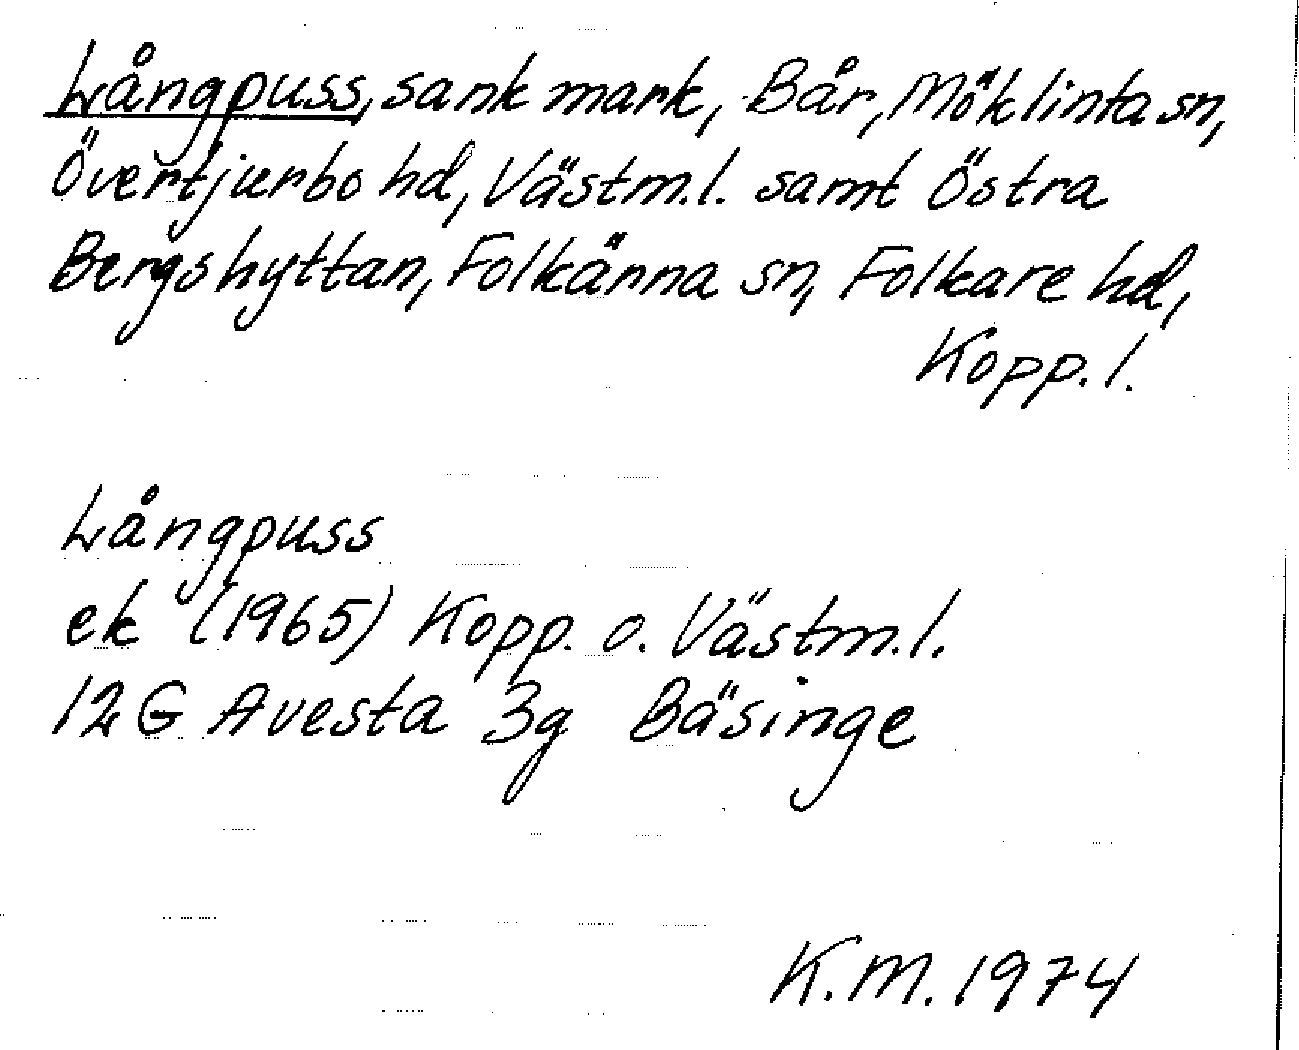 Långpuss, sank mark, Bår, Möklinta sn,
Övertjurbo hd, Västm.l. samt Östra
Bergshyttan, Folkänna sn, Folkare hd,
Kopp.l.
Långpuss
ek (1965) Kopp. o. Västm.l.
12G Avesta 3g Bäsinge
K.M. 1974